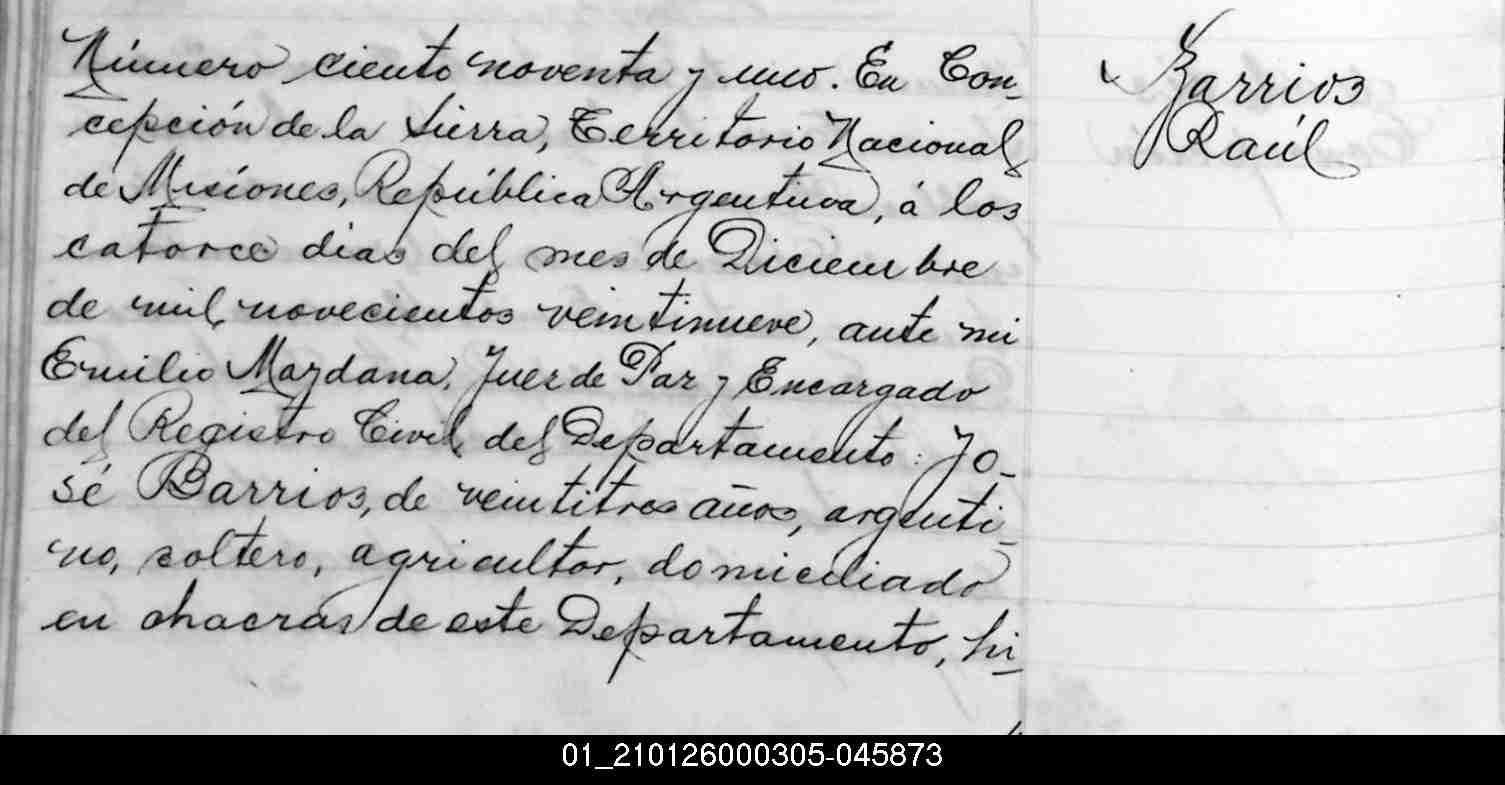 Número ciento noventa y uno. En Con-
cepción de la Sierra, Territorio Nacional
de Misiones, República Argentina, á los
catorce dias del mes de Diciembre
de mil novecientos veintinueve, ante mi
Emilio Maydana, Juez de Paz y Encargado
del Registro Civil del Departamento: Jo-
sé Barrios, de veintitres años, argenti-
no, soltero, agricultor, domiciliado
en chacras de este Departamento, hi-
Barrios
Raúl
01_210126000305-045873